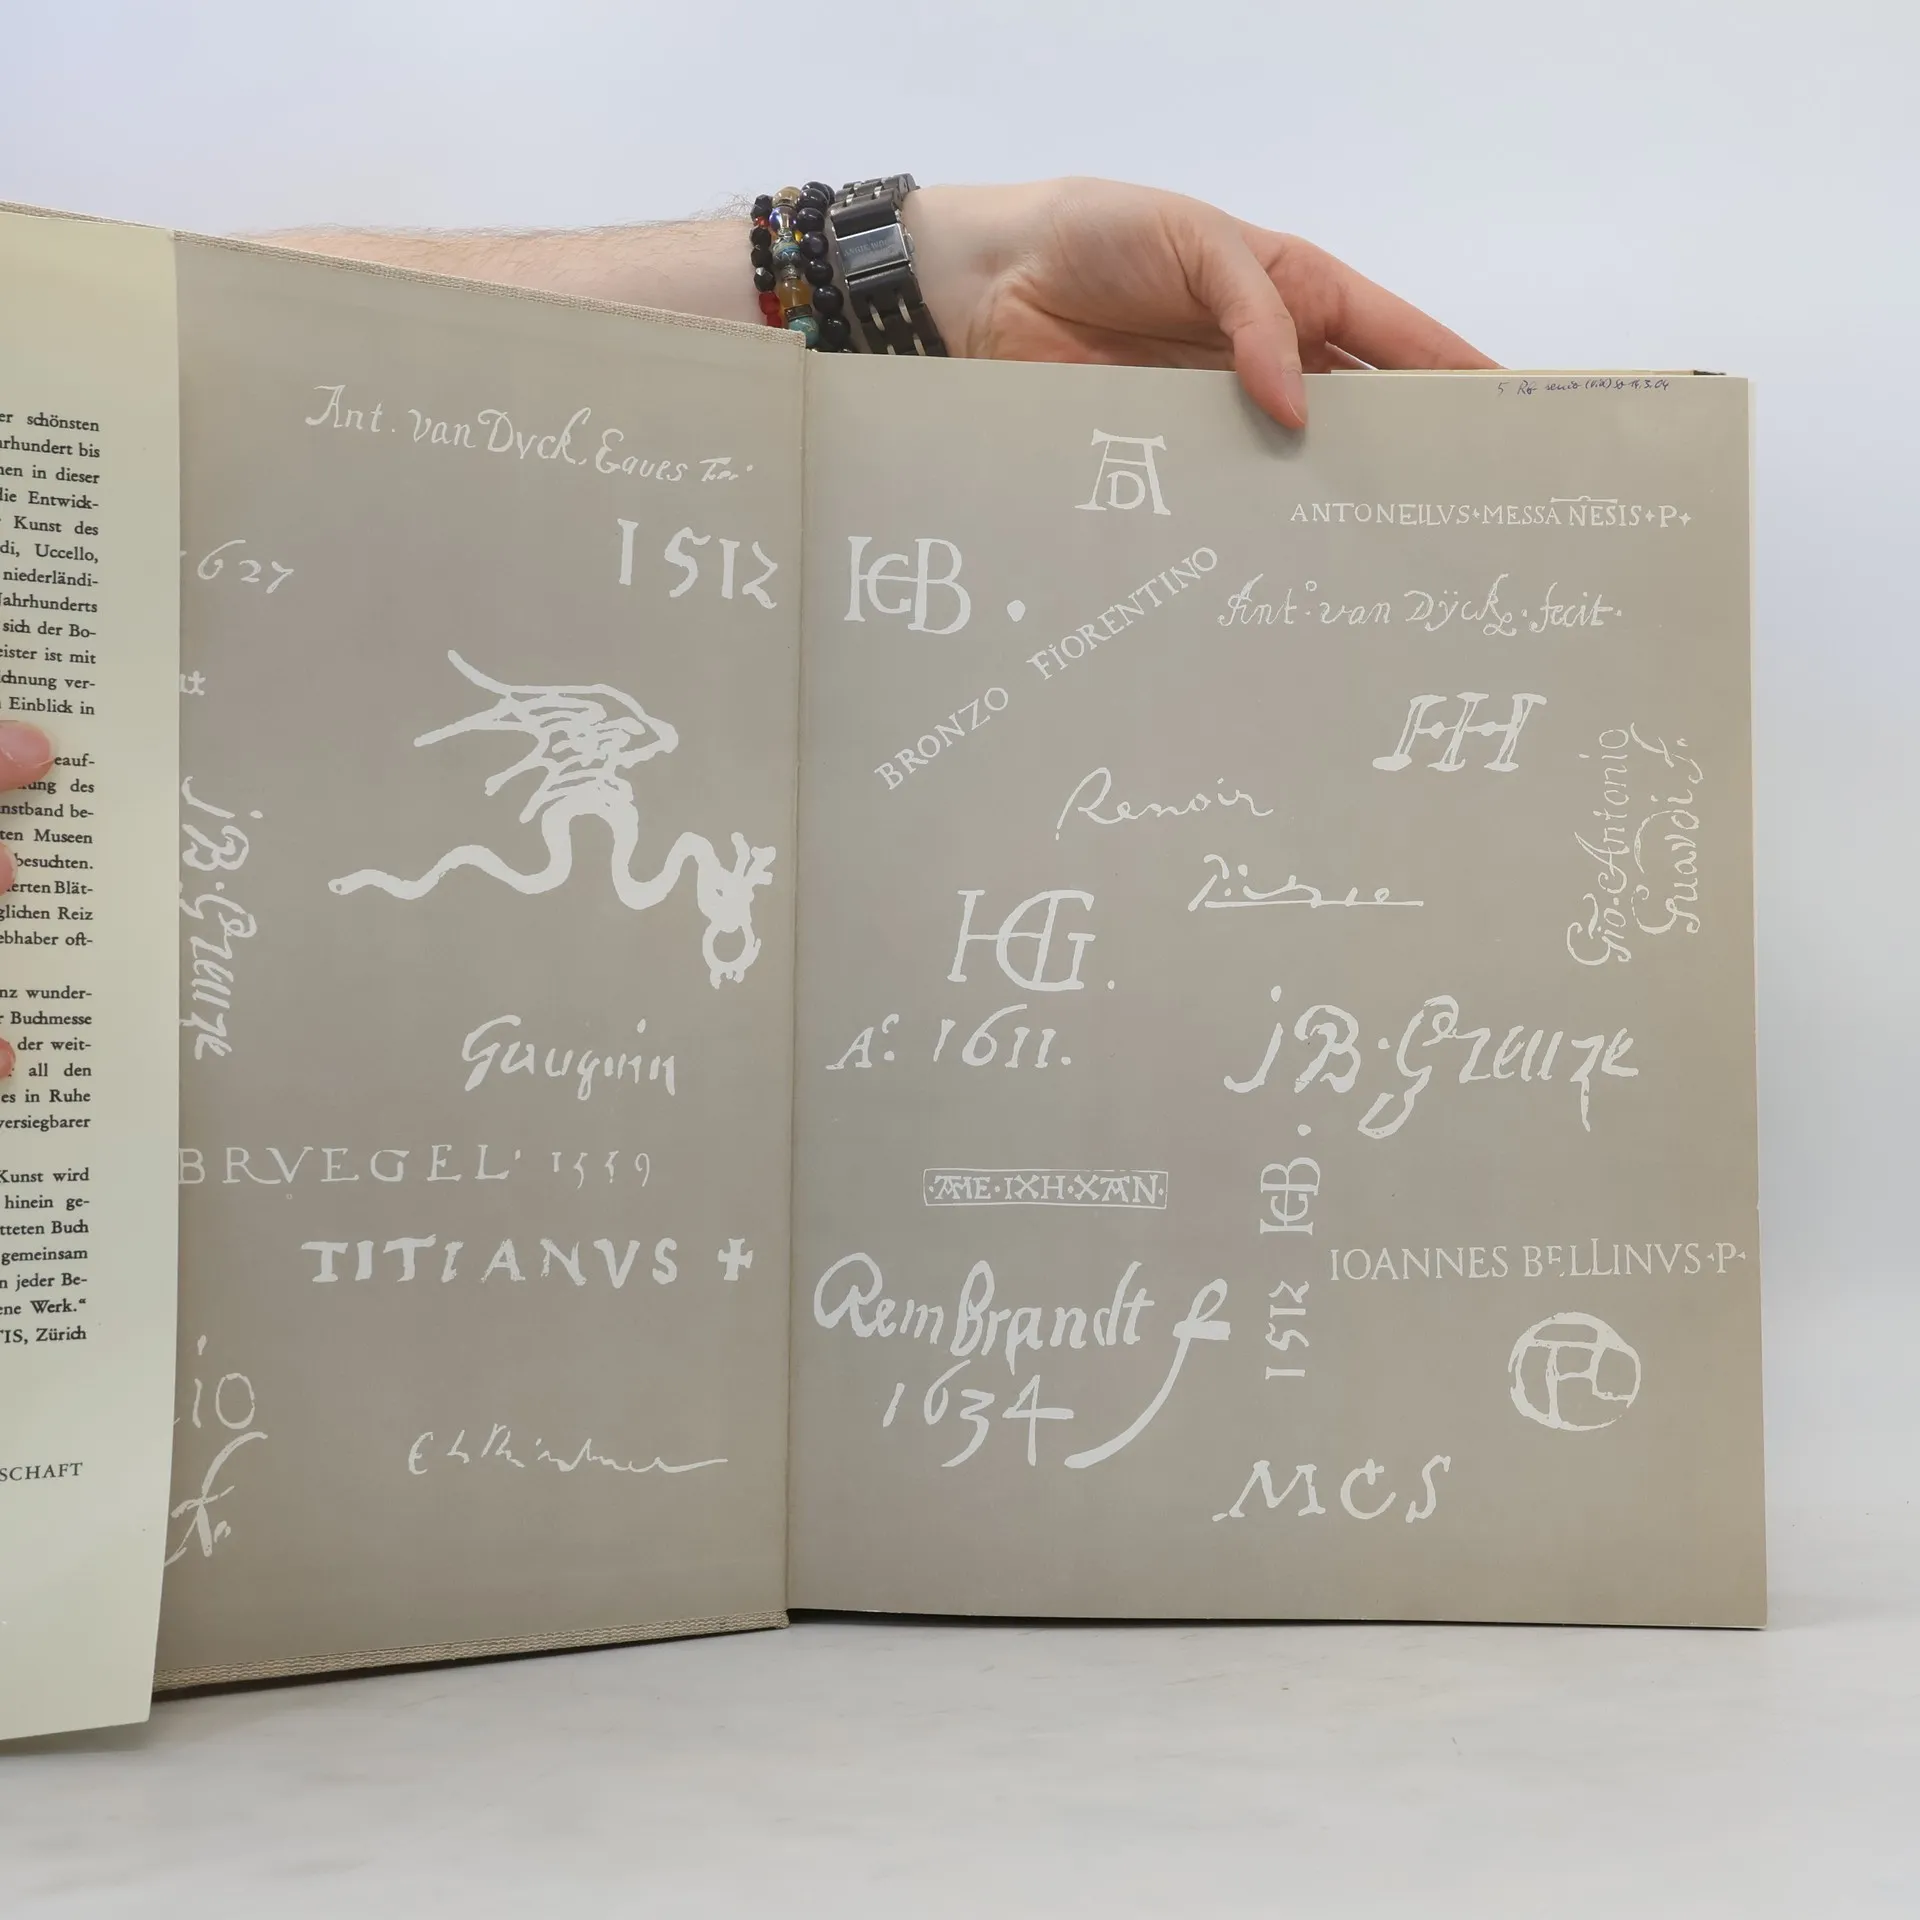 er schönsten
rhundert bis
nen in dieser
die Entwick-
Kunst des
di, Uccello,
niederländi-
Jahrhunderts
sich der Bo-
eister ist mit
chnung ver-
Einblick in
eauf-
ung des
nstband be-
ten Museen
besuchten.
ierten Blät-
glichen Reiz
ebhaber oft-
nz wunder-
r Buchmesse
der weit-
all den
es in Ruhe
versiegbarer
Kunst wird
hinein ge-
tteten Buch
gemeinsam
n jeder Be-
ene Werk.“
TIS, Zürich
SCHAFT
Ant. van Dyck. Eques
1627
1512
jB. Greuze
Gauguin
BRVEGEL 1559
TITIANVS
10
AD
ANTONELLVS MESSANESIS P
HGB
BRONZO FIORENTINO
Ant.o van Dÿck. fecit.
HH
Renoir
Gio. Antonio
Guardi F.
HG.
Ao. 1611.
jB. Greuze
AME·IXH·XAN
HGB.
1512
IOANNES BELLINVS·P
Rembrandt f
1634
MCS